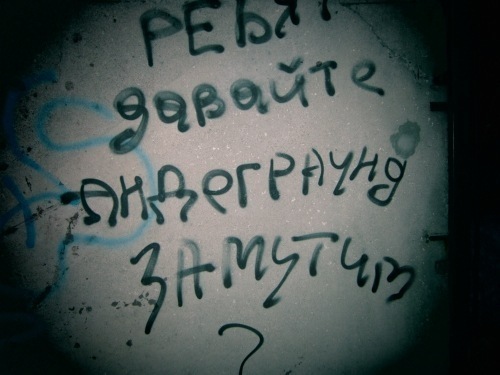 РЕБЯТ
давайте
АНДЕГРАУНД
ЗАМУТИМ
?